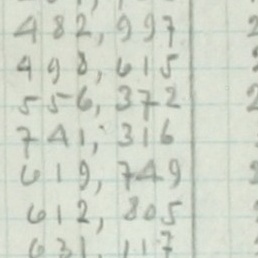 482,997
498,615
556,372
741,316
619,749
612,805
631,117